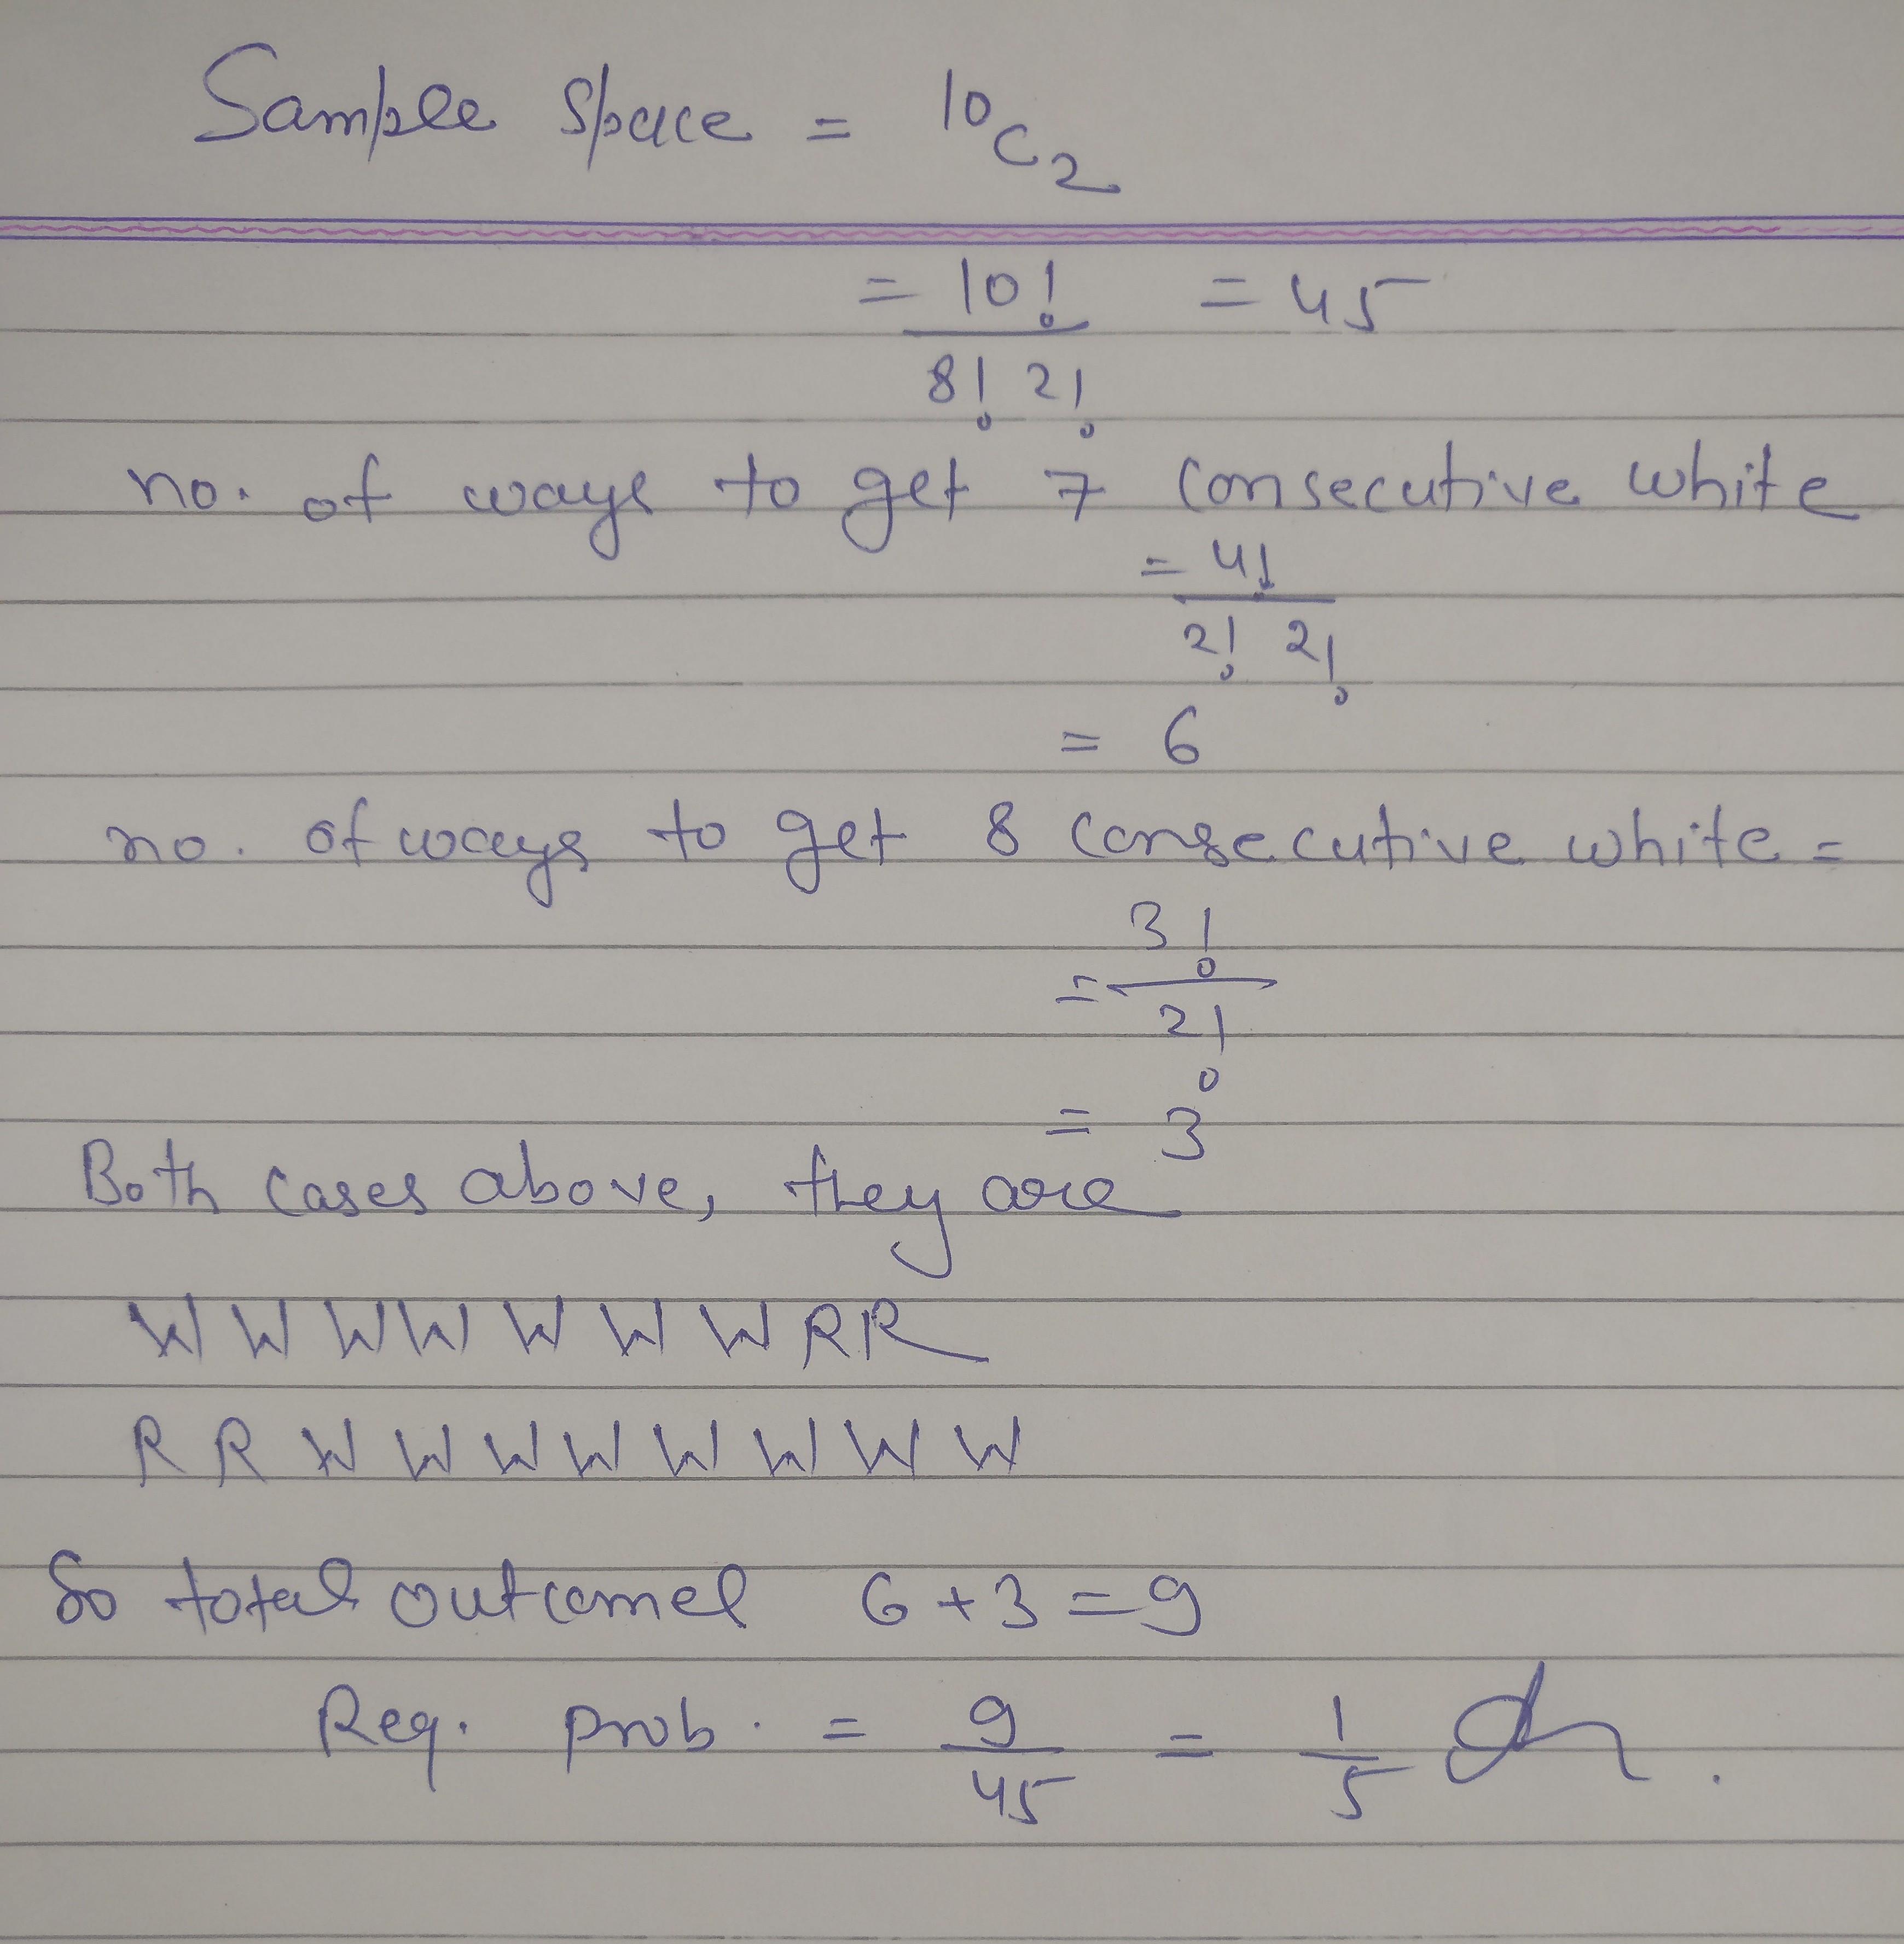 Sample Space = ¹⁰C₂
= 10! = 45
8! 2!
no. of ways to get 7 consecutive white
= 4!
2! 2!
= 6
no. of ways to get 8 consecutive white =
= 3!
2!
= 3
Both cases above, they are
W W W W W W W R R
R R W W W W W W W W
So total outcomes 6 + 3 = 9
Req. prob. = 9/45 = 1/5